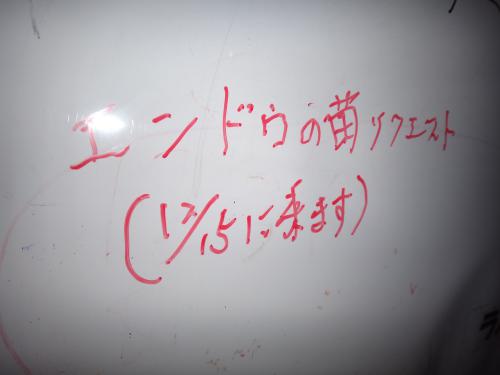 エンドウの苗リクエスト
(12/15に来ます)